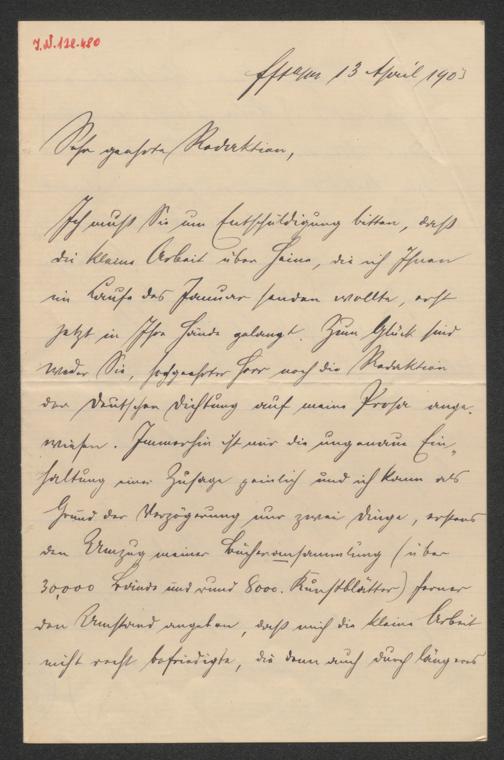 I.N. 128.480
13 April 1903
Sehr geehrte Redaktion,
Ich muß Sie um Entschuldigung bitten, daß
die kleine Arbeit über Heine, die ich Ihnen
im Laufe des Januar senden wollte, erst
jetzt in Ihre Hände gelangt. Zum Glück sind
weder Sie, hochgeehrter Herr noch die Redaktion
der Deutschen Dichtung auf meine Prosa ange-
wiesen. Immerhin ist mir die ungenaue Ein-
haltung einer Zusage peinlich und ich kann als
Grund der Verzögerung nur zwei Dinge, erstens
den Umzug meiner Bücheransammlung (über
30,000 Bände und rund 8000. Kunstblätter) ferner
den Umstand angeben, daß mich die kleine Arbeit
nicht recht befriedigte, die denn auch durch längeres